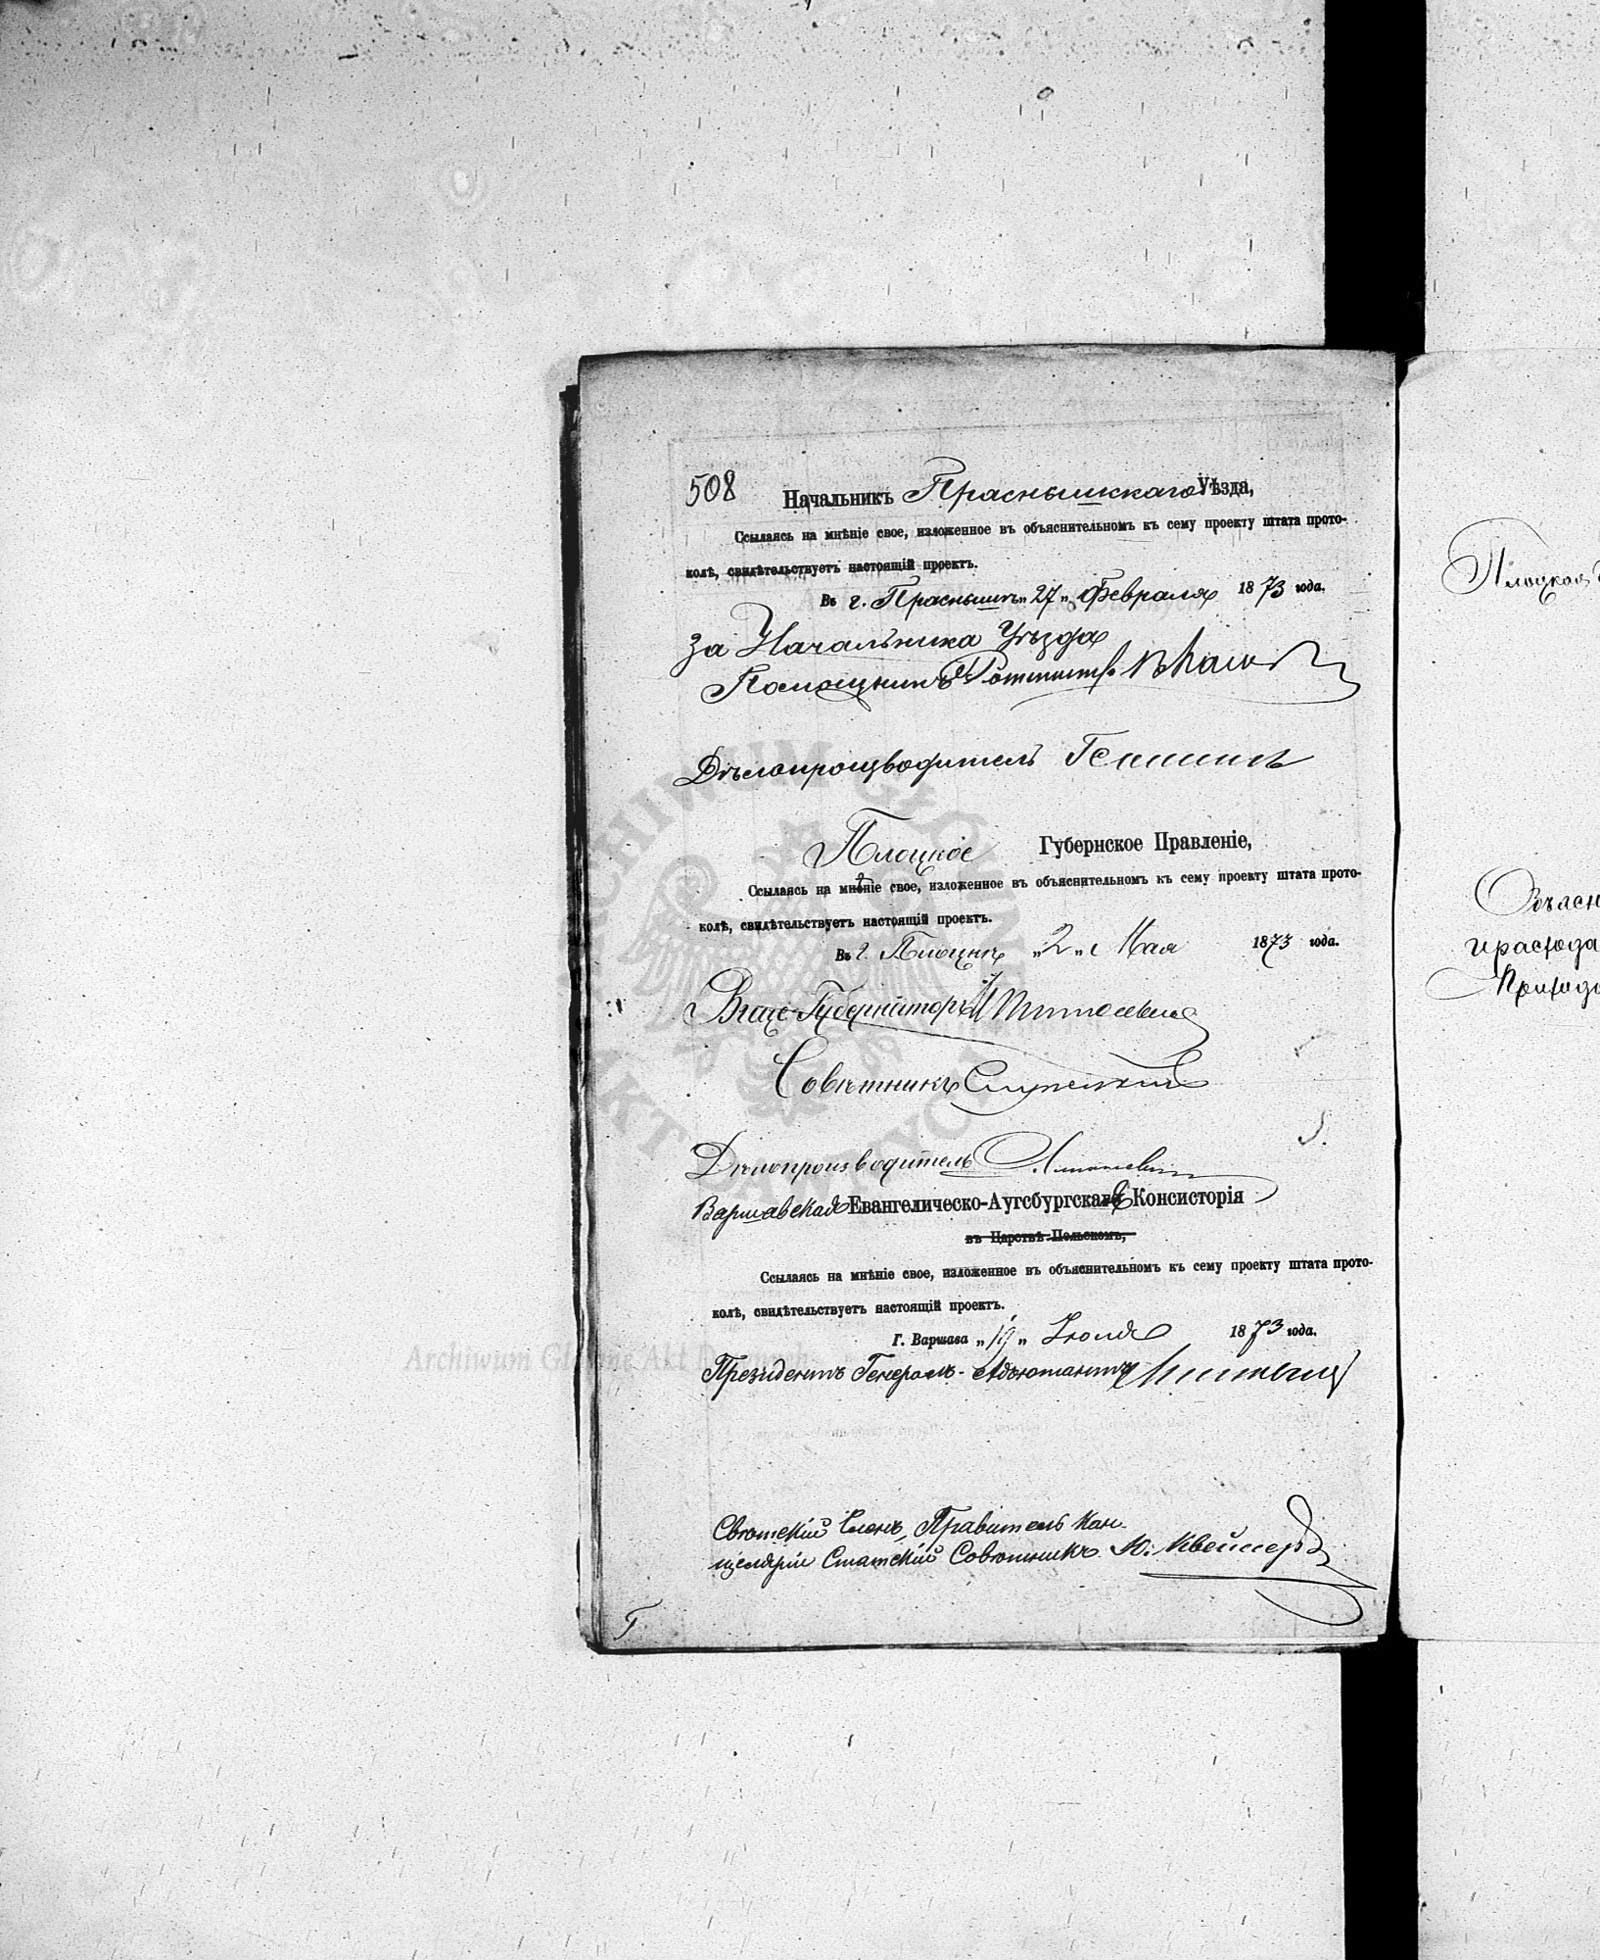 508
Начальникъ Праснышскаго Уѣзда,
Ссылаясь на мнѣніе свое, изложенное въ объяснительномъ къ сему проекту штата прото-
колѣ, свидѣтельствуетъ настоящій проектъ.
Въ г. Праснышѣ „27„ Февраля 1873 года.
За Начальника Уѣзда
Помощникъ Ротмистръ
Дѣлопроизводитель
Плоцкое Губернское Правленіе,
Ссылаясь на мнѣніе свое, изложенное въ объяснительномъ къ сему проекту штата прото-
колѣ, свидѣтельствуетъ настоящій проектъ.
Въ г. Плоцкѣ „2„ Мая 1873 года.
Вице-Губернаторъ
Совѣтникъ
Дѣлопроизводитель
Варшавская Евангелическо-Аугсбургская Консисторія
въ Царствѣ Польскомъ,
Ссылаясь на мнѣніе свое, изложенное въ объяснительномъ къ сему проекту штата прото-
колѣ, свидѣтельствуетъ настоящій проектъ.
Г. Варшава „19„ Іюля 1873 года.
Президентъ Генералъ-Адъютантъ
Свѣтскій Членъ, Правитель Кан-
целяріи Статскій Совѣтникъ Ю.
ARCHIWUM GŁÓWNE AKT DAWNYCH
Archiwum Główne Akt Dawnych
Плоцкой
Объясн
и расхода
Прихода